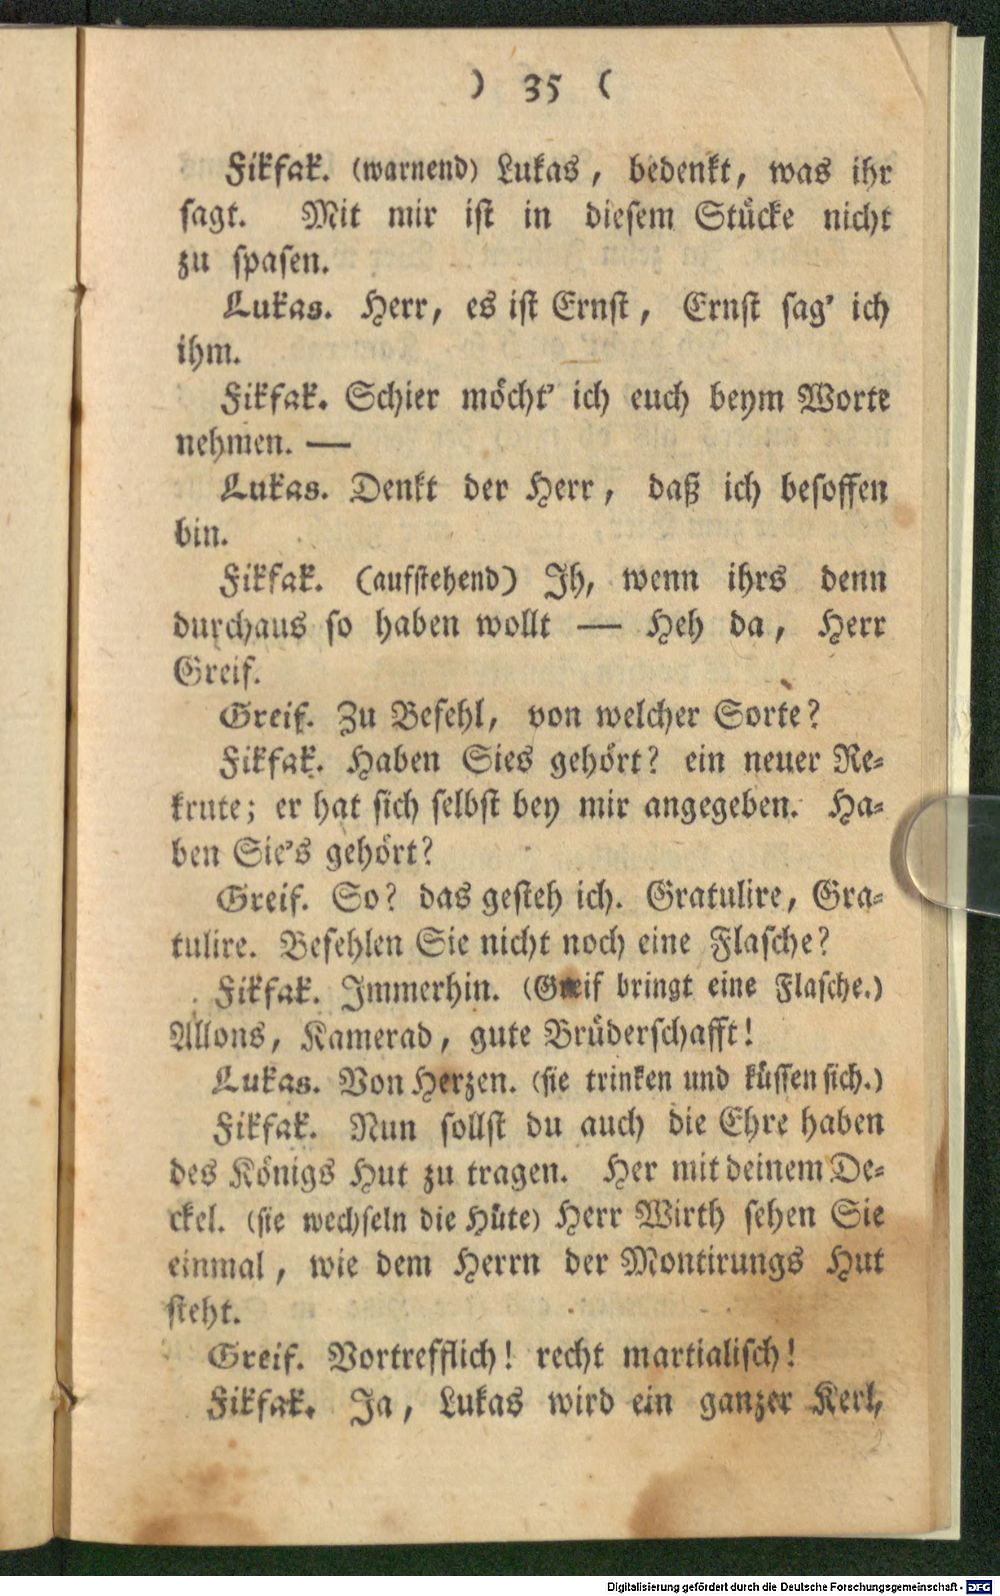 ) 35 (
Fikfak. (warnend) Lukas, bedenkt, was ihr
sagt. Mit mir ist in diesem Stücke nicht
zu spasen.
Lukas. Herr, es ist Ernst, Ernst sag' ich
ihm.
Fikfak. Schier möcht' ich euch beym Worte
nehmen. —
Lukas. Denkt der Herr, daß ich besoffen
bin.
Fikfak. (aufstehend) Ih, wenn ihrs denn
durchaus so haben wollt — Heh da, Herr
Greif.
Greif. Zu Befehl, von welcher Sorte?
Fikfak. Haben Sies gehört? ein neuer Re-
krute; er hat sich selbst bey mir angegeben. Ha-
ben Sie's gehört?
Greif. So? das gesteh ich. Gratulire, Gra-
tulire. Befehlen Sie nicht noch eine Flasche?
Fikfak. Immerhin. (Greif bringt eine Flasche.)
Allons, Kamerad, gute Brüderschafft!
Lukas. Von Herzen. (sie trinken und küssen sich.)
Fikfak. Nun sollst du auch die Ehre haben
des Königs Hut zu tragen. Her mit deinem De-
ckel. (sie wechseln die Hüte) Herr Wirth sehen Sie
einmal, wie dem Herrn der Montirungs Hut
steht.
Greif. Vortrefflich! recht martialisch!
Fikfak. Ja, Lukas wird ein ganzer Kerl,
Digitalisierung gefördert durch die Deutsche Forschungsgemeinschaft - DFG